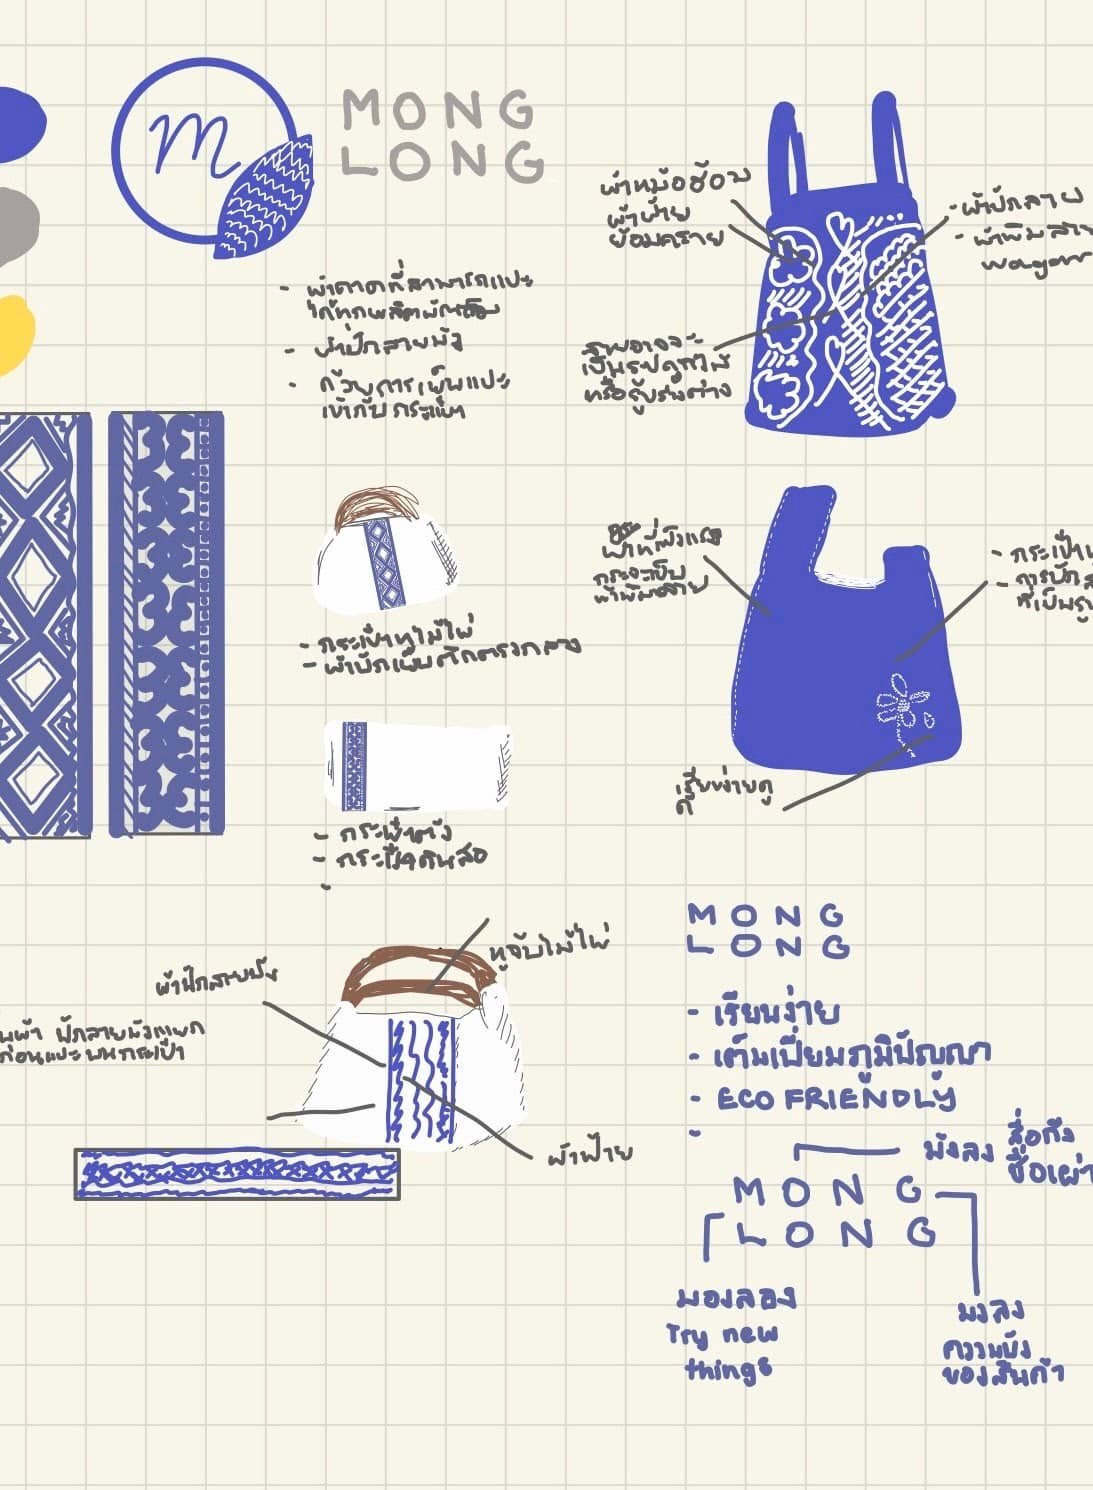 m
MONG
LONG
ผ้าหม้อห้อม
ผ้าฝ้าย
ย้อมคราม
- ผ้าปักลาย
- ผ้าพิมพ์ลาย
- ผ้าคาดที่สามารถแปะ
ได้ทุกผลิตภัณฑ์
- ผ้าปักลายม้ง
- ด้วยการเย็บแปะ
เข้ากับกระเป๋า
ภาพอาจจะ
เป็นรูปดอกไม้
หรือรูปร่างต่าง
ผ้าที่แข็งแรง
- กระเป๋า
- การปัก
ที่เป็นรูป
- กระเป๋าหูไม้ไผ่
- ผ้าปักเย็บติดตรงกลาง
เรียบง่ายดู
ดี
- กระเป๋าตัง
- กระเป๋าดินสอ
-
MONG
LONG
หูจับไม้ไผ่
ผ้าปักลายม้ง
ผ้า ปักลายม้งแยก
ก่อนแปะบนกระเป๋า
- เรียบง่าย
- เต็มเปี่ยมภูมิปัญญา
- ECO FRIENDLY
-
ผ้าฝ้าย
ม้งลง สื่อถึง
ชื่อเผ่า
MONG
LONG
มองลอง
Try new
things
มงลง
ความปัง
ของสินค้า